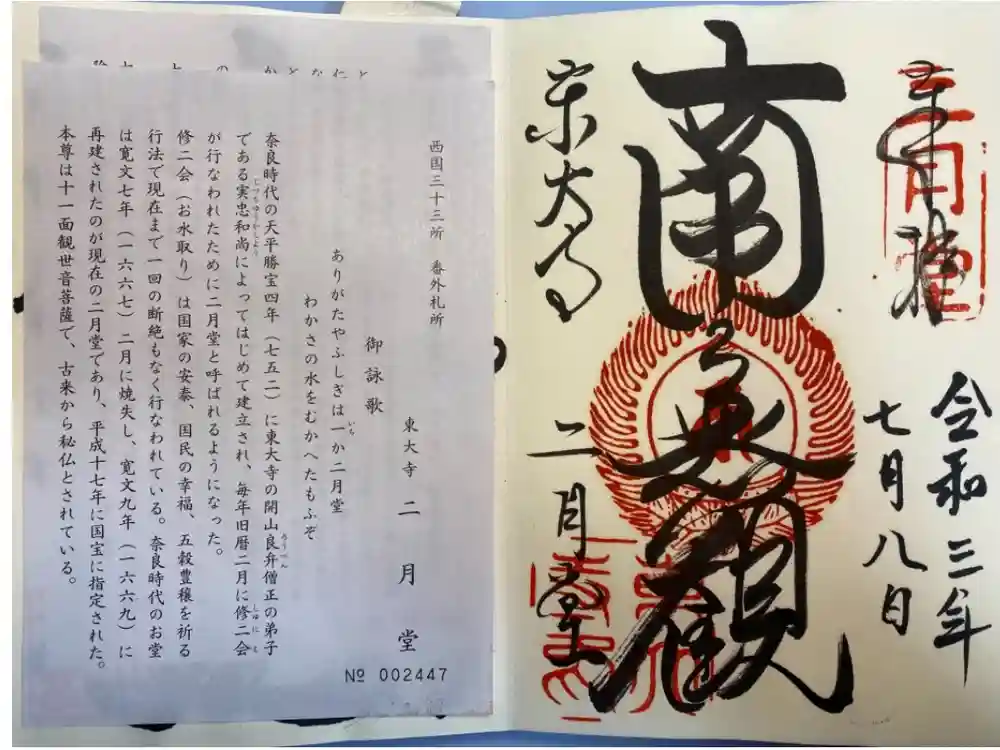 奉拝
二月堂
令和三年
七月八日
南無観
東大寺
二月堂
西国三十三所 番外札所
東大寺 二月堂
御詠歌
ありがたやふしぎは一か二月堂
いち
わかさの水をむかへたもふぞ
奈良時代の天平勝宝四年（七五二）に東大寺の開山良弁僧正の弟子
ろうべん
である実忠和尚によってはじめて建立され、毎年旧暦二月に修二会
じつちゆうかしよう
しゅにえ
が行なわれたために二月堂と呼ばれるようになった。
修二会（お水取り）は国家の安泰、国民の幸福、五穀豊穣を祈る
行法で現在まで一回の断絶もなく行なわれている。奈良時代のお堂
は寛文七年（一六六七）二月に焼失し、寛文九年（一六六九）に
再建されたのが現在の二月堂であり、平成十七年に国宝に指定された。
本尊は十一面観世音菩薩で、古来から秘仏とされている。
№ 002447